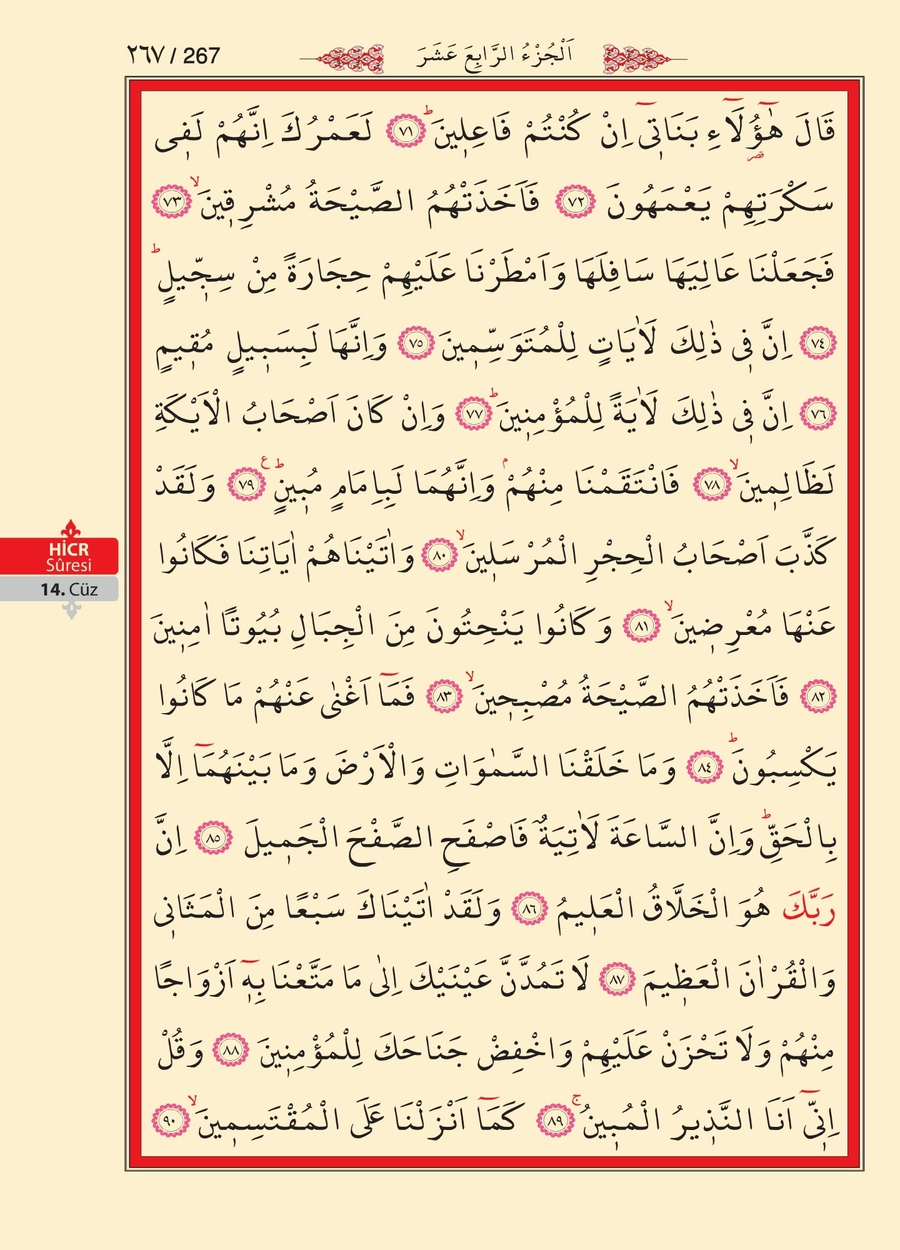 ٢٦٧ / 267
اَلْجُزْءُ الرَّابِعَ عَشَرَ
قَالَ هٰٓؤُ۬لَٓاءِ بَنَات۪ٓي اِنْ كُنْتُمْ فَاعِل۪ينَۜ ﴿٧١﴾ لَعَمْرُكَ اِنَّهُمْ لَف۪ي
سَكْرَتِهِمْ يَعْمَهُونَ ﴿٧٢﴾ فَاَخَذَتْهُمُ الصَّيْحَةُ مُشْرِق۪ينَۙ ﴿٧٣﴾
فَجَعَلْنَا عَالِيَهَا سَافِلَهَا وَاَمْطَرْنَا عَلَيْهِمْ حِجَارَةً مِنْ سِجّ۪يلٍۜ
﴿٧٤﴾ اِنَّ ف۪ي ذٰلِكَ لَاٰيَاتٍ لِلْمُتَوَسِّم۪ينَ ﴿٧٥﴾ وَاِنَّهَا لَبِسَب۪يلٍ مُق۪يمٍ
﴿٧٦﴾ اِنَّ ف۪ي ذٰلِكَ لَاٰيَةً لِلْمُؤْمِن۪ينَۜ ﴿٧٧﴾ وَاِنْ كَانَ اَصْحَابُ الْاَيْكَةِ
لَظَالِم۪ينَۙ ﴿٧٨﴾ فَانْتَقَمْنَا مِنْهُمْۢ وَاِنَّهُمَا لَبِاِمَامٍ مُب۪ينٍۜ ع ﴿٧٩﴾ وَلَقَدْ
كَذَّبَ اَصْحَابُ الْحِجْرِ الْمُرْسَل۪ينَۙ ﴿٨٠﴾ وَاٰتَيْنَاهُمْ اٰيَاتِنَا فَكَانُوا
عَنْهَا مُعْرِض۪ينَۙ ﴿٨١﴾ وَكَانُوا يَنْحِتُونَ مِنَ الْجِبَالِ بُيُوتًا اٰمِن۪ينَ
﴿٨٢﴾ فَاَخَذَتْهُمُ الصَّيْحَةُ مُصْبِح۪ينَۙ ﴿٨٣﴾ فَمَٓا اَغْنٰى عَنْهُمْ مَا كَانُوا
يَكْسِبُونَۜ ﴿٨٤﴾ وَمَا خَلَقْنَا السَّمٰوَاتِ وَالْاَرْضَ وَمَا بَيْنَهُمَٓا اِلَّا
بِالْحَقِّۜ وَاِنَّ السَّاعَةَ لَاٰتِيَةٌ فَاصْفَحِ الصَّفْحَ الْجَم۪يلَ ﴿٨٥﴾ اِنَّ
رَبَّكَ هُوَ الْخَلَّاقُ الْعَل۪يمُ ﴿٨٦﴾ وَلَقَدْ اٰتَيْنَاكَ سَبْعًا مِنَ الْمَثَان۪ي
وَالْقُرْاٰنَ الْعَظ۪يمَ ﴿٨٧﴾ لَا تَمُدَّنَّ عَيْنَيْكَ اِلٰى مَا مَتَّعْنَا بِه۪ٓ اَزْوَاجًا
مِنْهُمْ وَلَا تَحْزَنْ عَلَيْهِمْ وَاخْفِضْ جَنَاحَكَ لِلْمُؤْمِن۪ينَ ﴿٨٨﴾ وَقُلْ
اِنّ۪ٓي اَنَا النَّذ۪يرُ الْمُب۪ينُۚ ﴿٨٩﴾ كَمَٓا اَنْزَلْنَا عَلَى الْمُقْتَسِم۪ينَۙ ﴿٩٠﴾
HİCR
Sûresi
14. Cüz